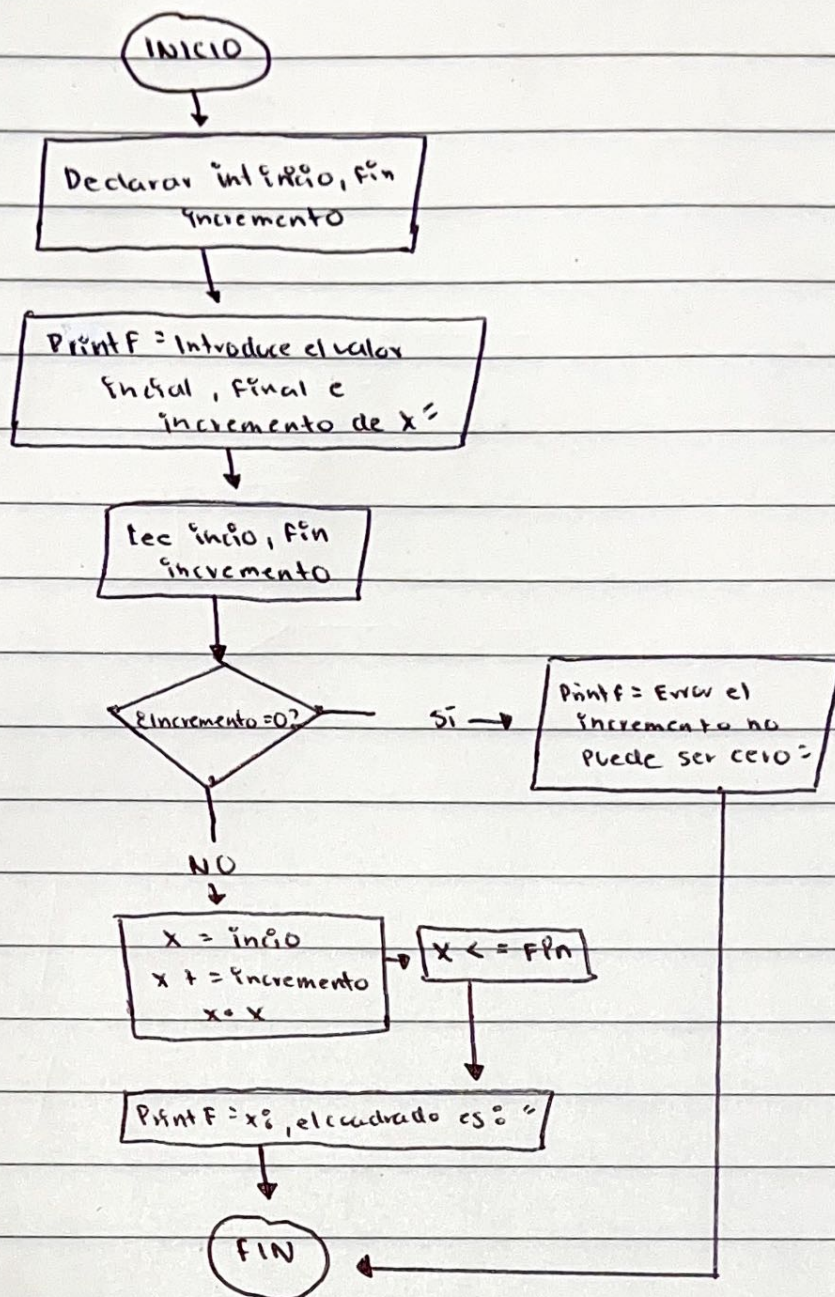 INICIO
Declarar int inicio, fin
incremento
Printf = Introduce el valor
incial, final e
incremento de x =
Lee incio, fin
incremento
¿Incremento =0?
Sí
Printf = Error el
incremento no
puede ser cero =
NO
x = incio
x += incremento
x • x
x <= Fin
Printf = x:, el cuadrado es: "
FIN